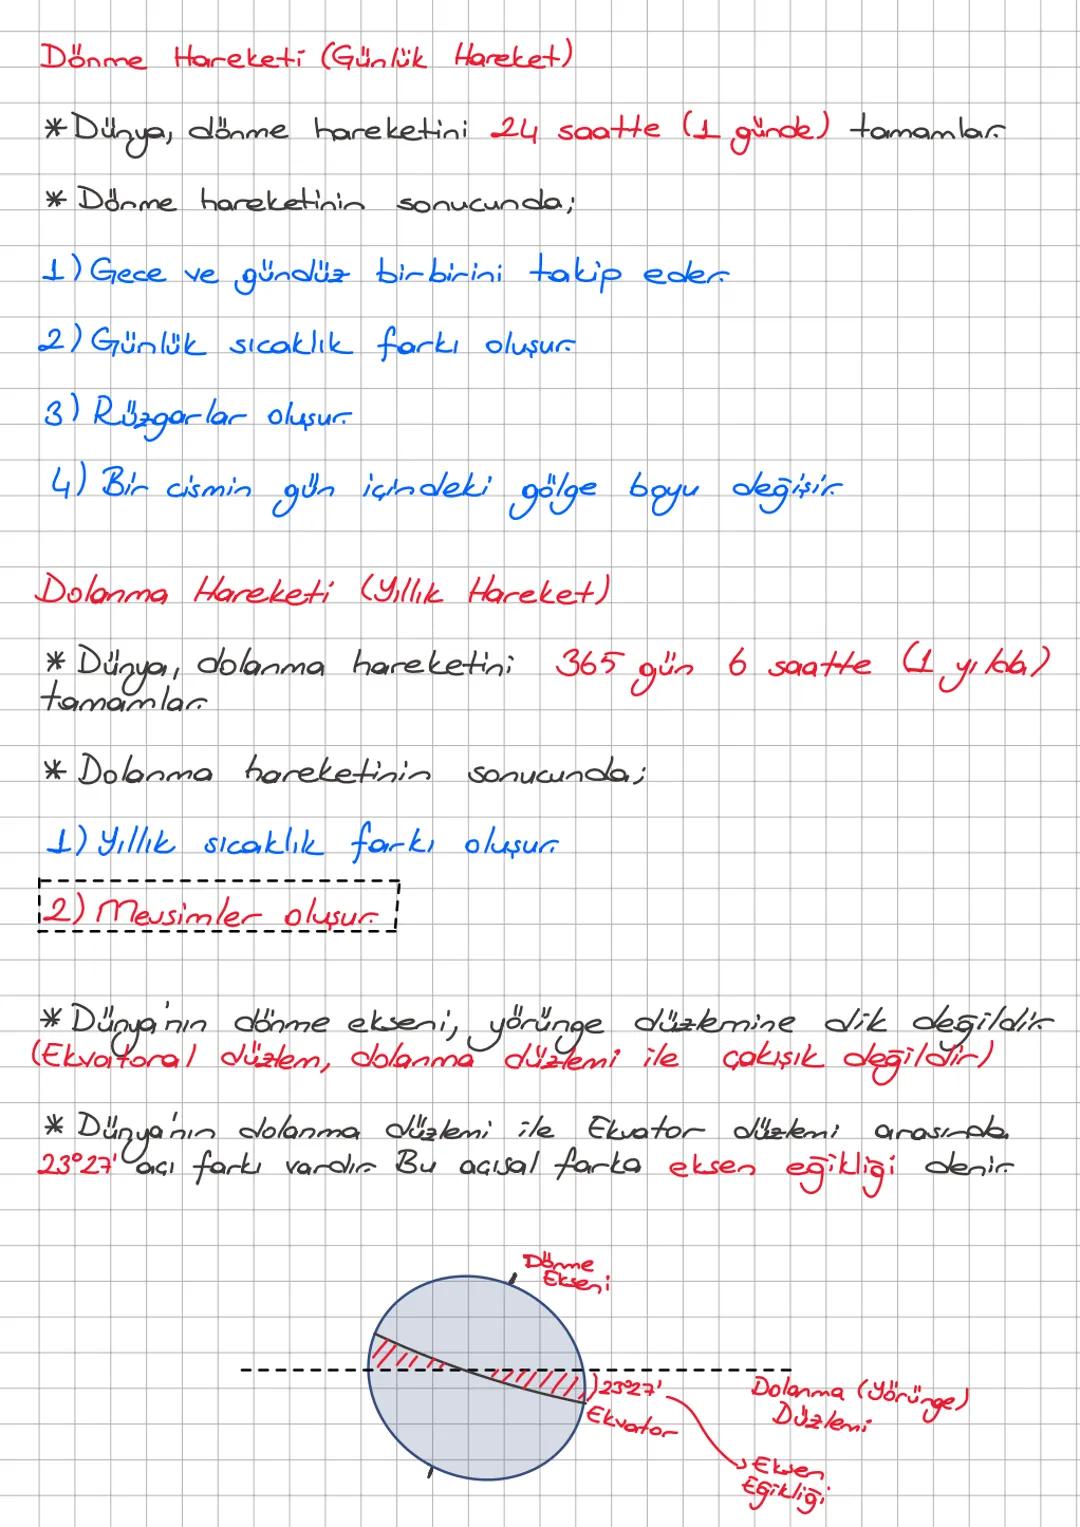 Dönme Hareketi (Günlük Hareket)
* Dünya, dönme hareketini 24 saatte (1 günde) tamamlar.
* Dönme hareketinin sonucunda;
1) Gece ve gündüz birbirini takip eder.
2) Günlük sıcaklık farkı oluşur.
3) Rüzgarlar oluşur.
4) Bir cismin gün içindeki gölge boyu değişir.
Dolanma Hareketi (Yıllık Hareket)
* Dünya, dolanma hareketini 365 gün 6 saatte (1 yılda)
tamamlar.
* Dolanma hareketinin sonucunda;
1) Yıllık sıcaklık farkı oluşur.
2) Mevsimler oluşur.
* Dünya'nın dönme ekseni, yörünge düzlemine dik değildir.
(Ekvatoral düzlem, dolanma düzlemi ile çakışık değildir)
* Dünya'nın dolanma düzlemi ile Ekvator düzlemi arasında
23°27' açı farkı vardır. Bu açısal farka eksen eğikliği denir.
Dönme
Ekseni
23°27'
Ekvator
Dolanma (Yörünge)
Düzlemi
Eksen
Eğikliği